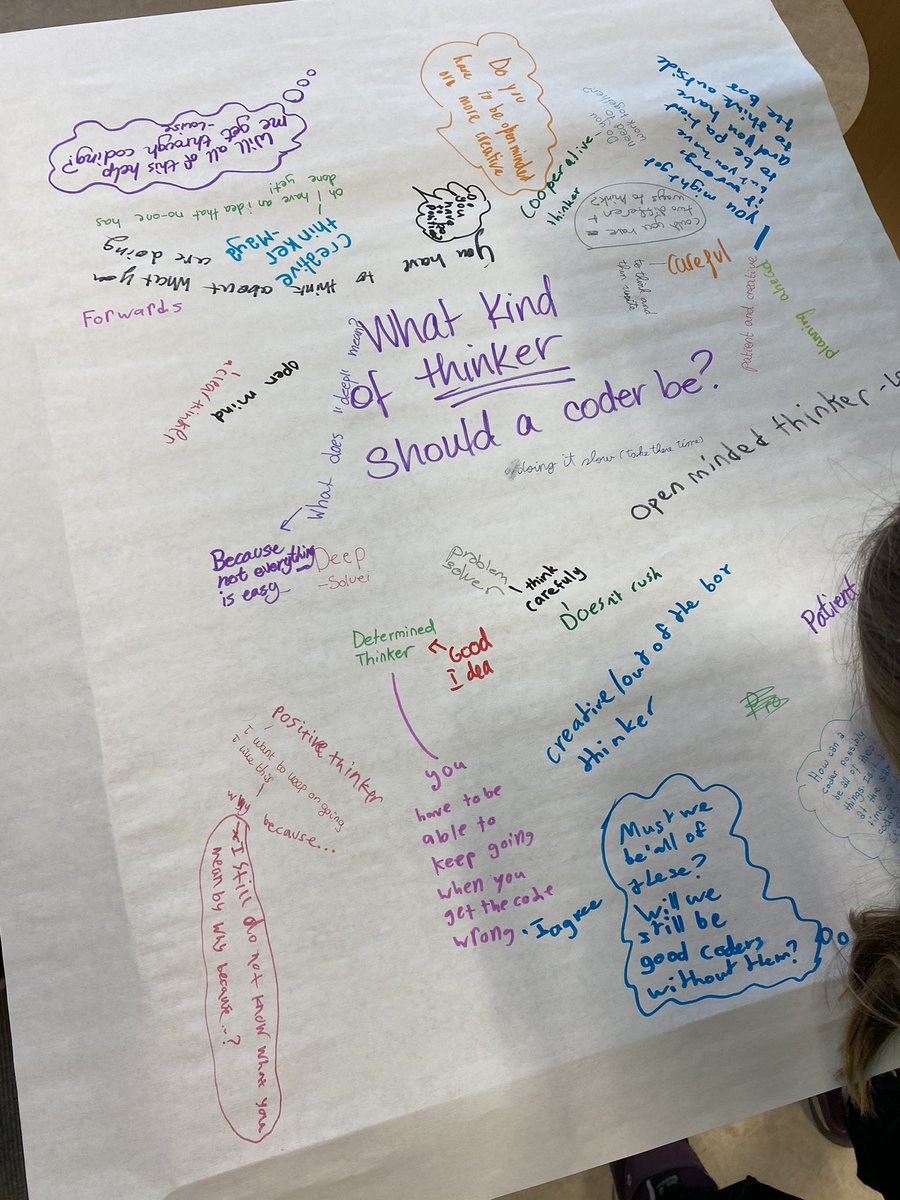 What Kind
of thinker
should a coder be?
Will all of this help
me get through coding?
-Louise
oh I have an idea that no-one has
done yet!
creative
thinker
-Maya
You have
to think about what you
are doing
Forwards
Do you
have to be open minded
or a more creative
you
have to be
Do you
need to
work together?
cooperative
thinker
could you have a
two different
ways to think?
you might get
it wrong
but you have
to be pa
and You
to think
outside
the box
careful
to think and
then write
patient and creative
planning
ahead
a clear thinker
open mind
What does "deep" mean?
Because
not everything
is easy
Deep
-Solvei
doing it slow (take there time)
Open minded thinker
problem
solver
think
carefuly
Doesn't rush
Determined
Thinker
Good
Idea
creative/out of the box
thinker
Patient
Pro
positive thinker
i want to keep on going
i like this
because...
why
I still do not know what you
mean by why because...?
you
have to be
able to
keep going
when you
get the code
wrong
•I agree
Must we
be all of
these?
Will we
still be
good coders
without them?
How can a
coder possibly
be all of these
things. Is
at the
time or
coders